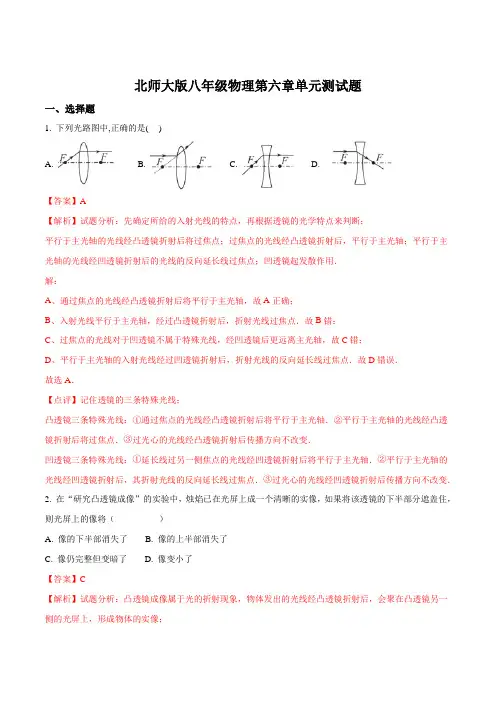 北师大版八年级物理第六章单元测试题
一、选择题
1. 下列光路图中,正确的是( )
A. F F B. F F C. F F D. F F
【答案】A
【解析】试题分析：先确定所给的入射光线的特点，再根据透镜的光学特点来判断：
平行于主光轴的光线经凸透镜折射后将过焦点；过焦点的光线经凸透镜折射后，平行于主光轴；平行于主
光轴的光线经凹透镜折射后的光线的反向延长线过焦点；凹透镜起发散作用．
解：
A、通过焦点的光线经凸透镜折射后将平行于主光轴，故 A 正确；
B、入射光线平行于主光轴，经过凸透镜折射后，折射光线过焦点．故 B 错；
C、过焦点的光线对于凹透镜不属于特殊光线，经凹透镜后更远离主光轴，故 C 错；
D、平行于主光轴的入射光线经过凹透镜折射后，折射光线的反向延长线过焦点．故 D 错误．
故选 A．
【点评】记住透镜的三条特殊光线；
凸透镜三条特殊光线：①通过焦点的光线经凸透镜折射后将平行于主光轴．②平行于主光轴的光线经凸透
镜折射后将过焦点．③过光心的光线经凸透镜折射后传播方向不改变．
凹透镜三条特殊光线：①延长线过另一侧焦点的光线经凹透镜折射后将平行于主光轴．②平行于主光轴的
光线经凹透镜折射后，其折射光线的反向延长线过焦点．③过光心的光线经凹透镜折射后传播方向不改变．
2. 在“研究凸透镜成像”的实验中，烛焰已在光屏上成一个清晰的实像，如果将该透镜的下半部分遮盖住，
则光屏上的像将（ ）
A. 像的下半部消失了 B. 像的上半部消失了
C. 像仍完整但变暗了 D. 像变小了
【答案】C
【解析】试题分析：凸透镜成像属于光的折射现象，物体发出的光线经凸透镜折射后，会聚在凸透镜另一
侧的光屏上，形成物体的实像；